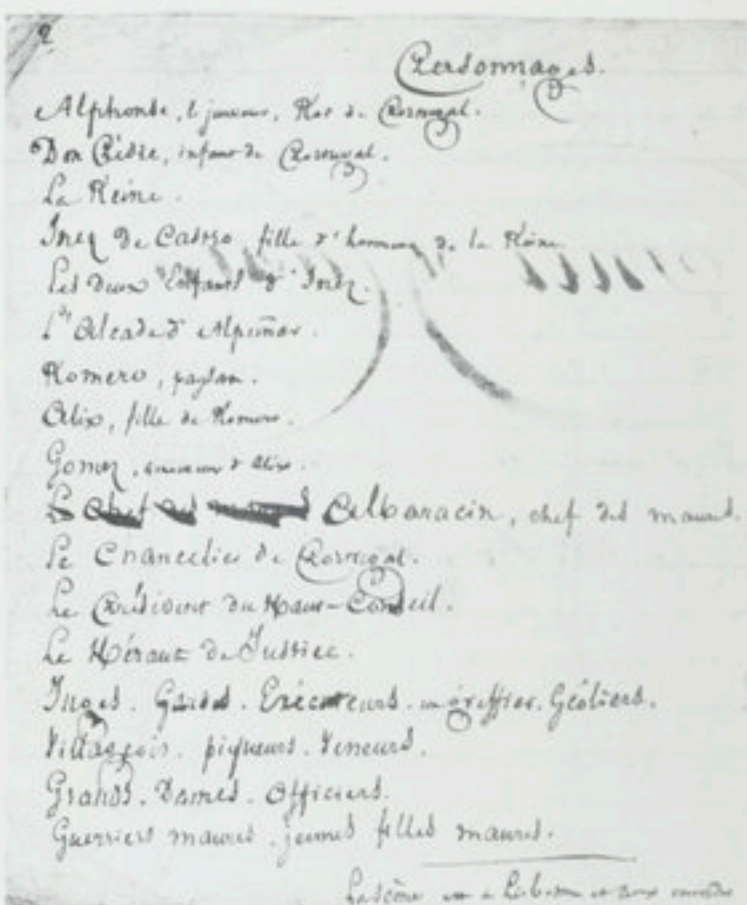 2
Personnages.
Alphonse, le justicier, Roi de Portugal.
Don Pèdre, infant de Portugal.
La Reine.
Inez de Castro, fille d'honneur de la Reine
Les deux Enfans d'Inez.
L'Alcade d'Alpuñar.
Romero, paysan.
Alix, fille de Romero.
Gomez, amoureux d'Alix.
Le Chef des maures Albaracin, chef des maures.
Le Chancelier de Portugal.
Le Président du Haut-Conseil.
Le Héraut de Justice.
Juges. Gardes. Exécuteurs. un greffier. Geôliers.
Villageois. piqueurs. Veneurs.
Grands. Dames. Officiers.
Guerriers maures. jeunes filles maures.
La scène est à Lisbonne et aux